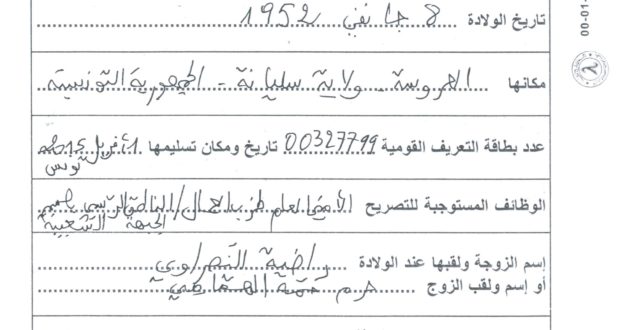 تاريخ الولادة 8 جانفي 1952
مكانها العروسة - ولاية سليانة - الجمهورية التونسية
عدد بطاقة التعريف القومية 00327799 تاريخ ومكان تسليمها 1 أفريل 2015
تونس
الوظائف المستوجبة للتصريح الأمين العام لحزب العمال / الناطق الرسمي باسم
الجبهة الشعبية
إسم الزوجة ولقبها عند الولادة راضية النصراوي
أو إسم ولقب الزوج حرم حمة الهمامي
00-01-